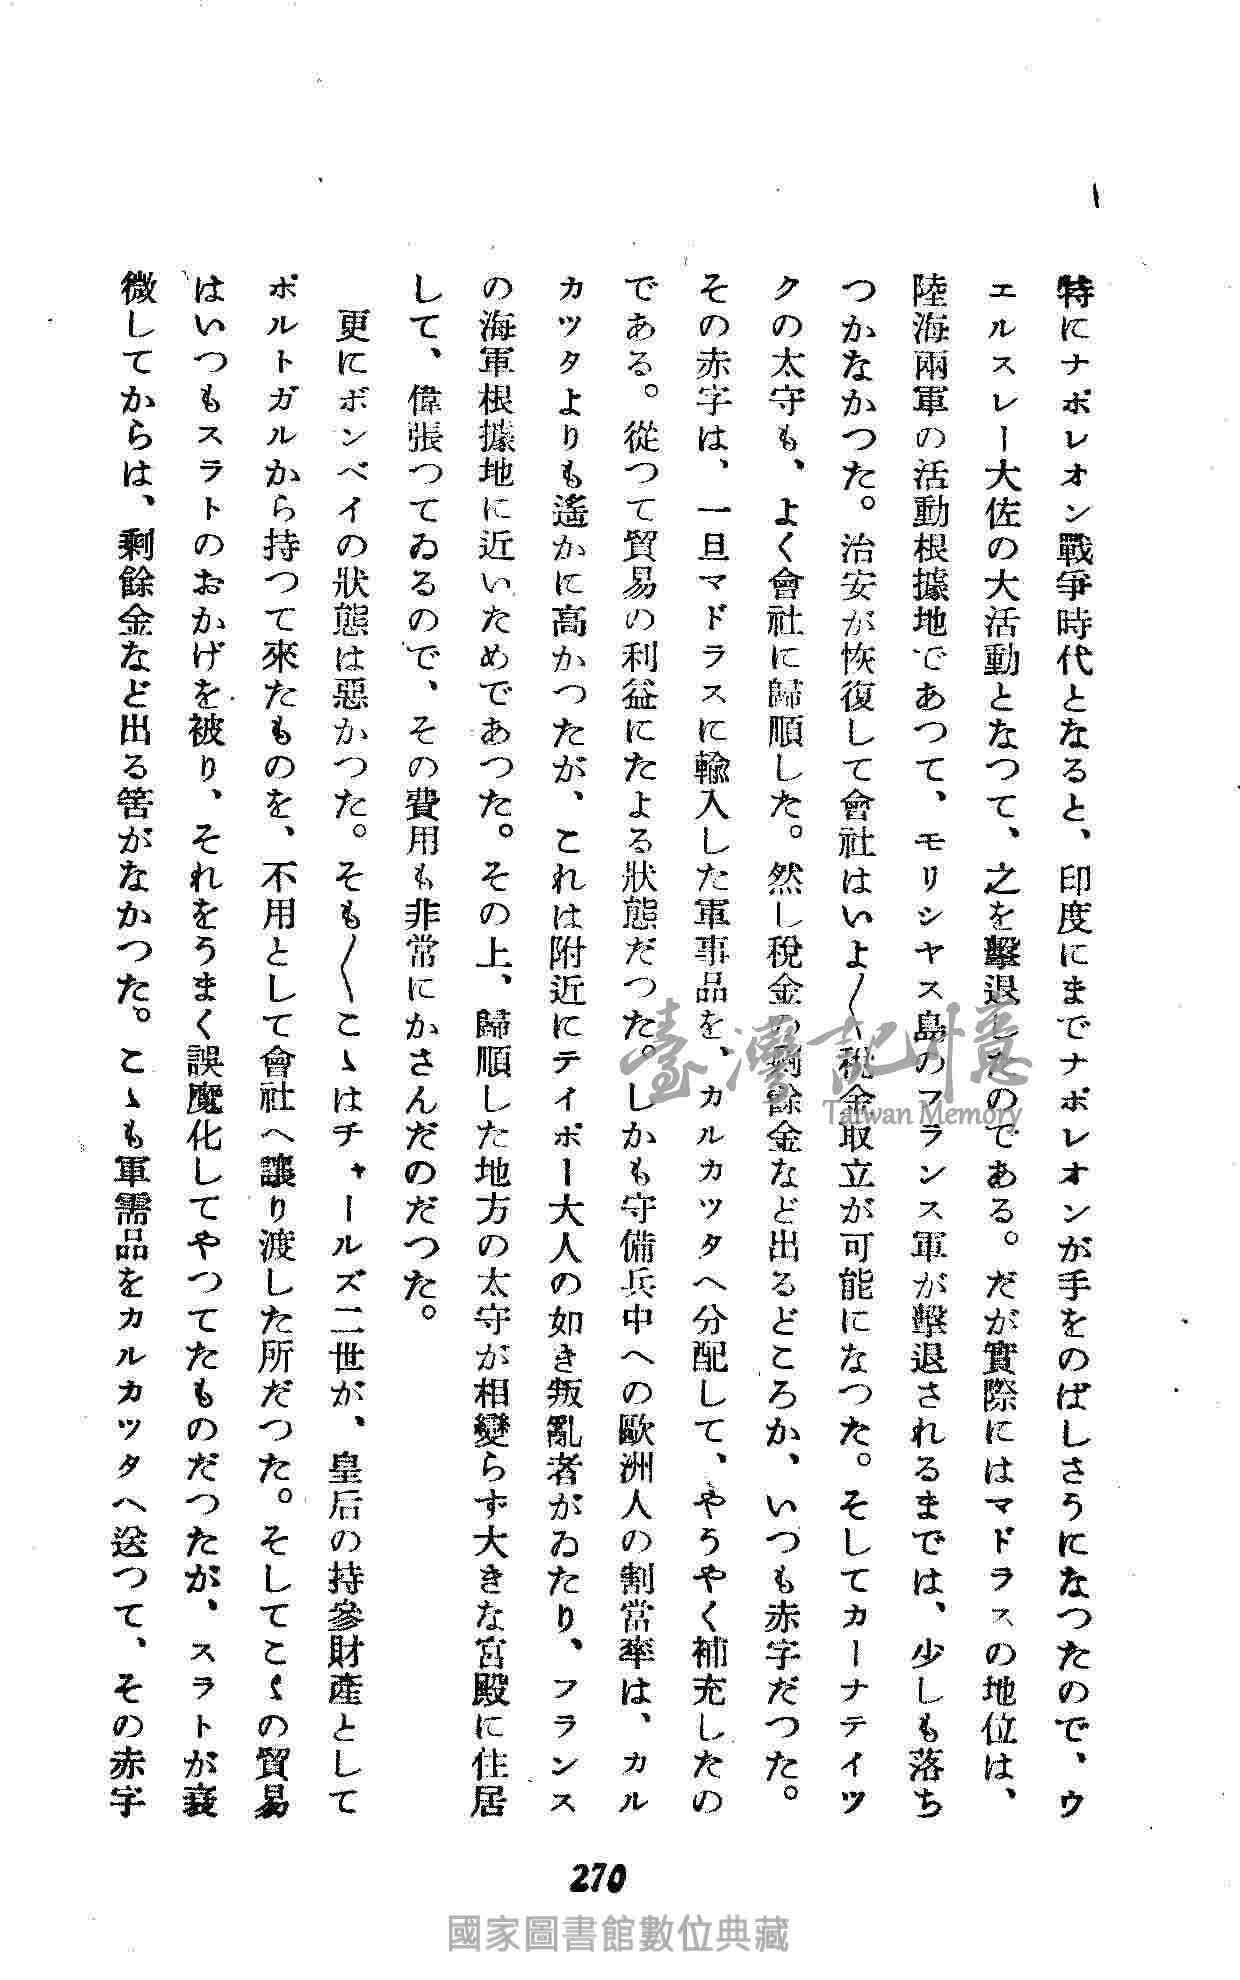 特にナポレオン戰爭時代となると、印度にまでナポレオンが手をのばしさうになつたので、ウ
エルスレー大佐の大活動となつて、之を擊退したのである。だが實際にはマドラスの地位は、
陸海兩軍の活動根據地であつて、モリシヤス島のフランス軍が擊退されるまでは、少しも落ち
つかなかつた。治安が恢復して會社はいよ〳〵稅金取立が可能になつた。そしてカーナテイツ
クの太守も、よく會社に歸順した。然し稅金の剩餘金など出るどころか、いつも赤字だつた。
その赤字は、一旦マドラスに輸入した軍事品を、カルカツタへ分配して、やうやく補充したの
である。從つて貿易の利益にたよる狀態だつた。しかも守備兵中への歐洲人の割當率は、カル
カツタよりも遙かに高かつたが、これは附近にテイポー大人の如き叛亂者がゐたり、フランス
の海軍根據地に近いためであつた。その上、歸順した地方の太守が相變らず大きな宮殿に住居
して、偉張つてゐるので、その費用も非常にかさんだのだつた。
更にボンベイの狀態は惡かつた。そも〳〵こゝはチャールズ二世が、皇后の持參財產として
ポルトガルから持つて來たものを、不用として會社へ讓り渡した所だつた。そしてこゝの貿易
はいつもスラトのおかげを被り、それをうまく誤魔化してやつてたものだつたが、スラトが衰
微してからは、剩餘金など出る筈がなかつた。こゝも軍需品をカルカツタへ送つて、その赤字
270
臺灣記憶
Taiwan Memory
國家圖書館數位典藏